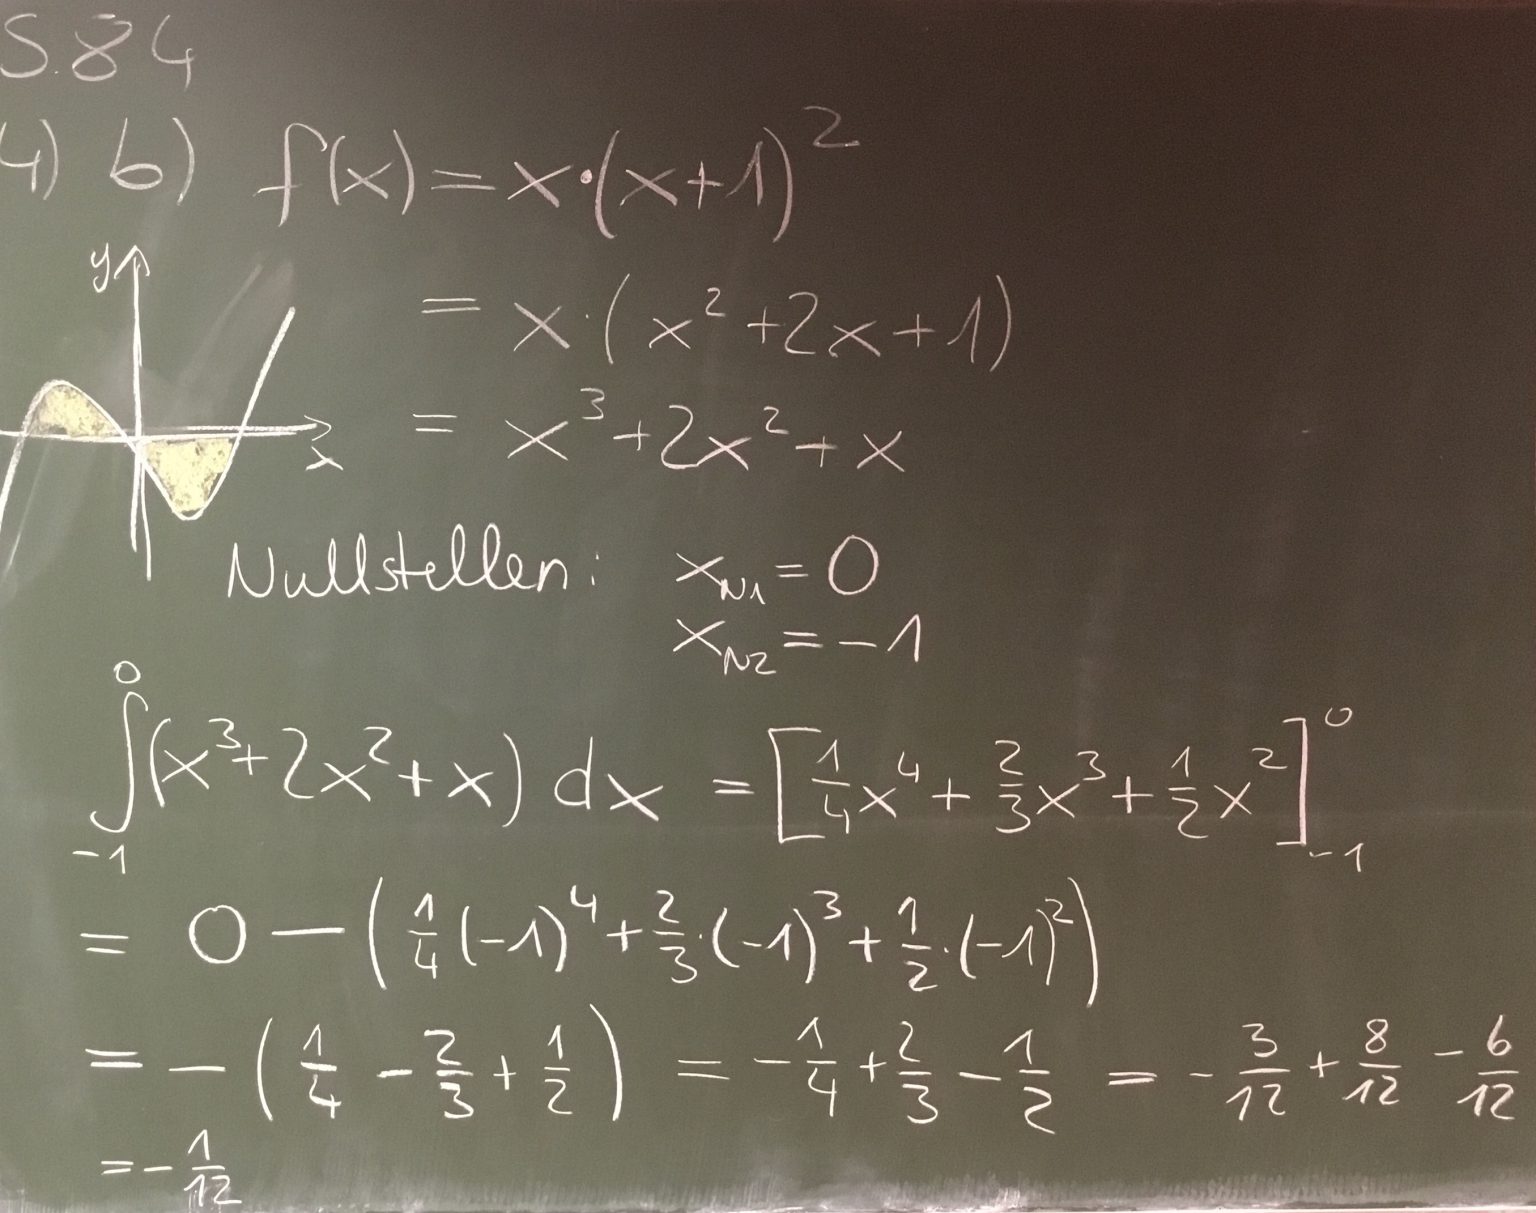 S.84
4) b) f(x) = x·(x+1)²
= x·(x²+2x+1)
= x³+2x²+x
y
x
Nullstellen: x_N1 = 0
x_N2 = -1
∫_{-1}^{0} (x³+2x²+x) dx = [1/4 x⁴ + 2/3 x³ + 1/2 x²]_{-1}^{0}
= 0 - (1/4 (-1)⁴ + 2/3·(-1)³ + 1/2·(-1)²)
= - (1/4 - 2/3 + 1/2) = - 1/4 + 2/3 - 1/2 = - 3/12 + 8/12 - 6/12
= - 1/12